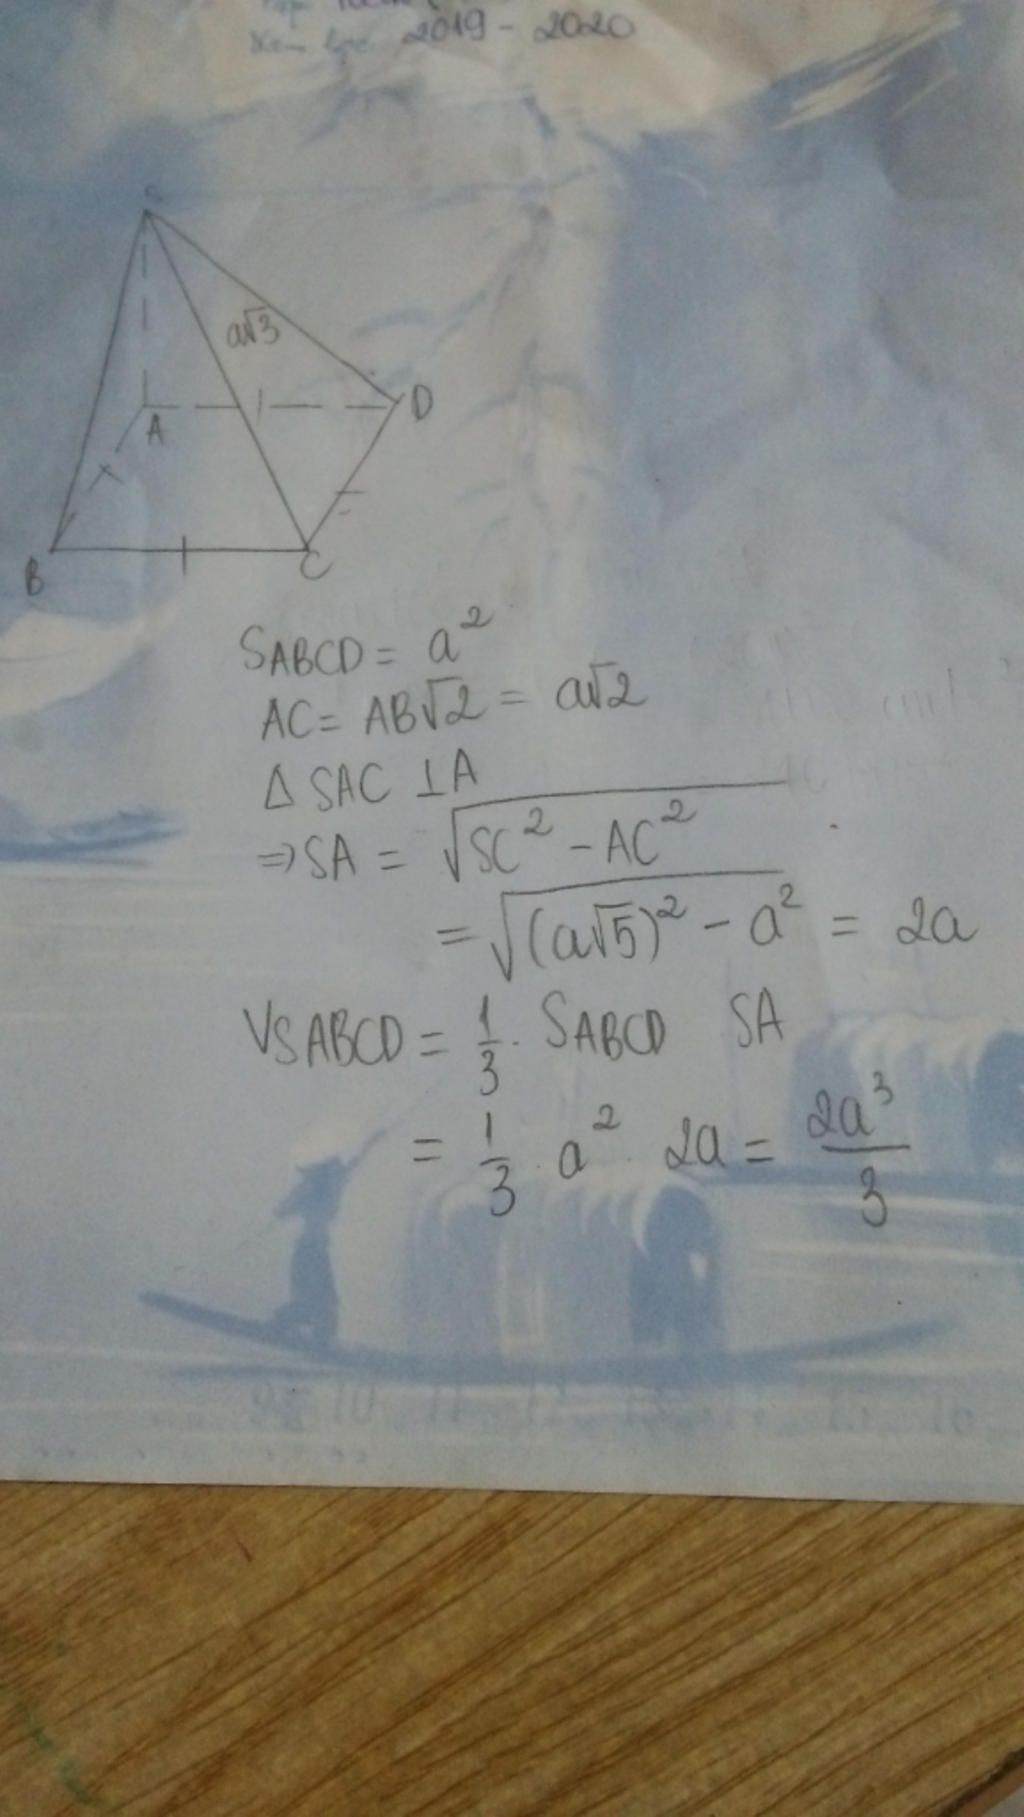 2019 - 2020
S
a√3
A
D
B
C
SABCD = a²
AC = AB√2 = a√2
Δ SAC ⊥A
⇒ SA = √SC² - AC²
= √(a√5)² - a² = 2a
VSABCD = 1/3 . SABCD SA
= 1/3 . a² . 2a = 2a³/3